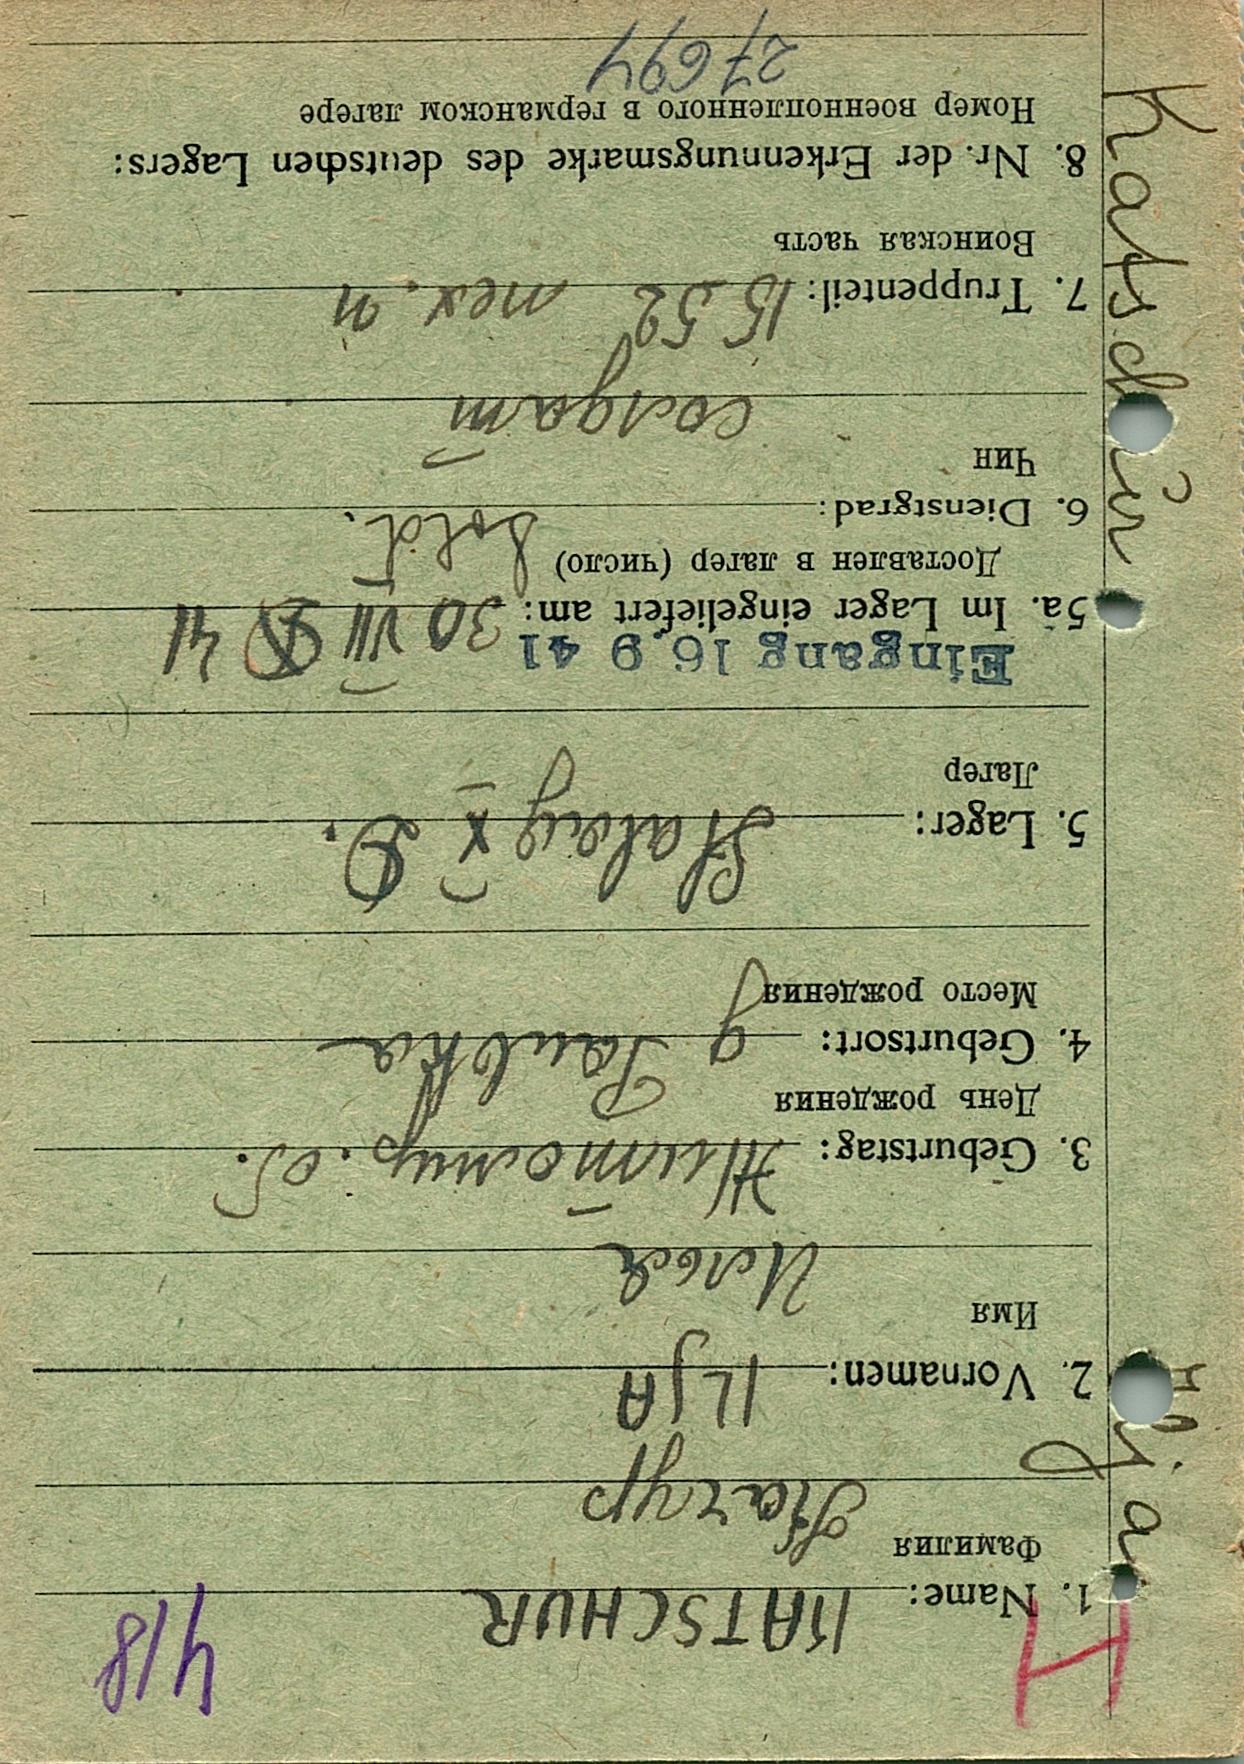 418
H
1. Name: KATSCHUR
Фамилия
Качур
2. Vornamen: ILJA
Имя
Илья
3. Geburtstag: Житомир. об.
День рождения
4. Geburtsort: д
Место рождения
5. Lager: Stalag X D.
Лагер
Eingang 16. 9 41
5a. Im Lager eingeliefert am: 30 VIII 41
Доставлен в лагер (число)
6. Dienstgrad: Sold.
Чин
солдат
7. Truppenteil: 15 52
Воинская часть
8. Nr. der Erkennungsmarke des deutschen Lagers:
Номер военнопленного в германском лагере
27694
Katschur
Ilja